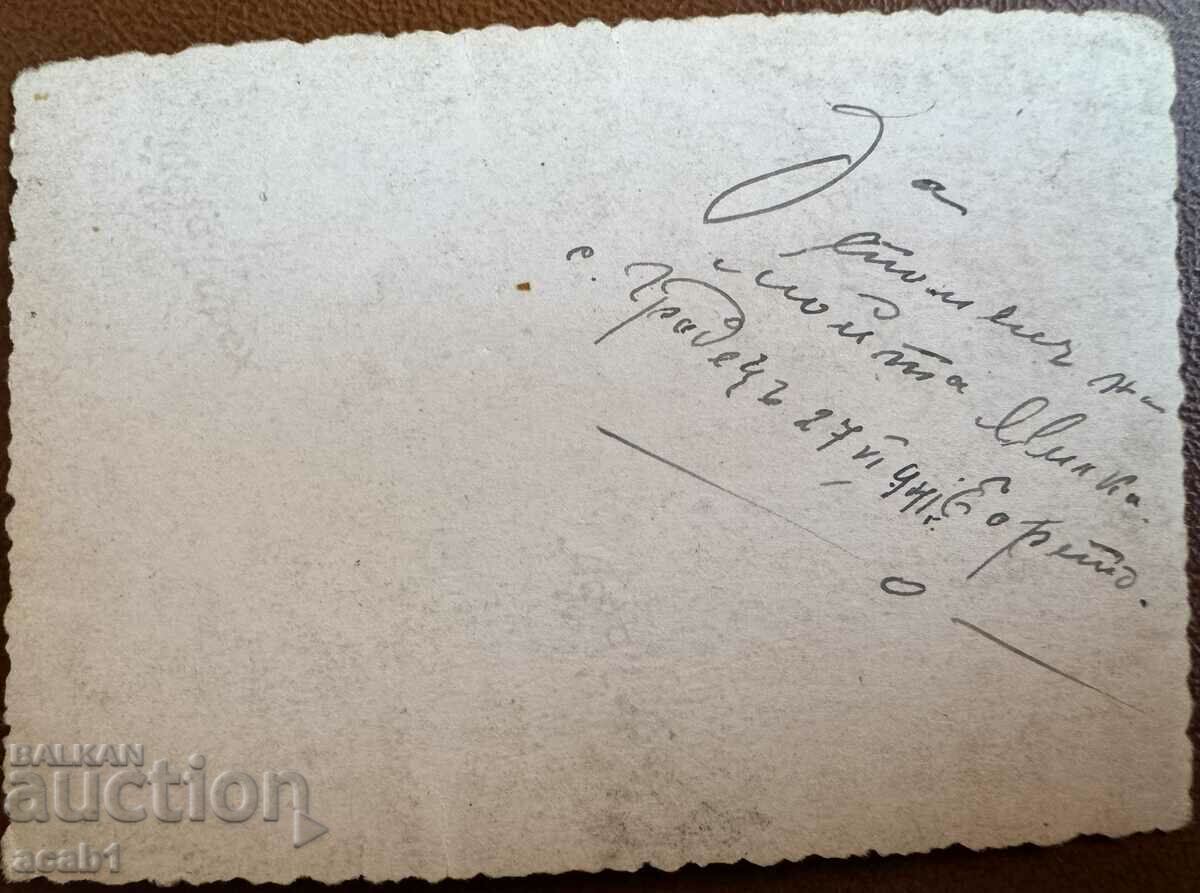 За
спомен на
моята Минка.
с. Градецъ 27 VI 941 г.
BALKAN
auction
acab1